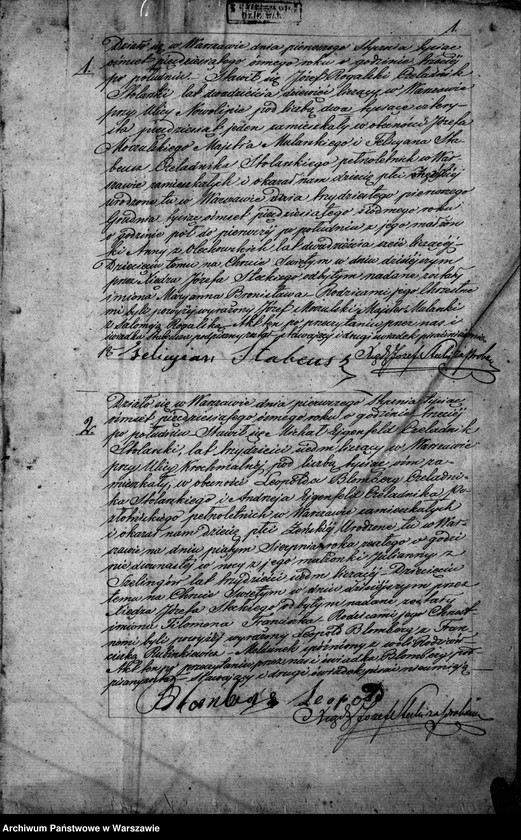 1
1.
Działo się w Warszawie dnia pierwszego Stycznia tysiąc
ośmset pięćdziesiątego ósmego roku o godzinie trzeciej
po południu. Stawił się Józef Rogalski Czeladnik
Stolarski lat dwadzieścia dziewięć liczący w Warszawie
przy Ulicy Nowolipie pod liczbą dwa tysiące czterysta
pięćdziesiąt jeden zamieszkały w obecności Józefa
Majstra Mularskiego i Felicyana Sta-
beusa Czeladnika Stolarskiego pełnoletnich w War-
szawie zamieszkałych i okazał nam dziecię płci Żeńskiej
urodzone tu w Warszawie dnia trzydziestego pierwszego
Grudnia tysiąc ośmset pięćdziesiątego siódmego roku
o godzinie pół do pierwszej po południu z jego małżon-
ki Anny z lat dwadzieścia sześć liczącej
Dziecięciu temu na Chrzcie Świętym w dniu dzisiejszym
przez Xiędza Józefa Steckiego odbytym nadane zostały
imiona Maryanna Bronisława. Rodzicami jego Chrzestne-
mi byli pozwyż wyrażony Józef Majster Mularski
z Salomeą Rogalską. Akt ten po przeczytaniu przez nas i
świadka podpisany został. Stawający i drugi świadek pisać nieumieją
Felicyan Stabeus
2.
Działo się w Warszawie dnia pierwszego Stycznia tysiąc
ośmset pięćdziesiątego ósmego roku o godzinie trzeciej
po południu. Stawił się Michał Eigenfeld Czeladnik
Stolarski, lat trzydzieści siedm liczący w Warszawie
przy Ulicy Krochmalnej pod liczbą tysiąc ośm za-
mieszkały, w obecności Leopolda Blomberg Czeladni-
ka Stolarskiego i Andrzeja Eigenfeld Czeladnika
pełnoletnich w Warszawie zamieszkałych
i okazał nam dziecię płci Żeńskiej Urodzone tu w War-
szawie na dniu piątym Sierpnia roku zeszłego o godzi-
nie dwunastej w nocy z jego małżonki Julianny z
Szelingów lat trzydzieści siedm liczącej Dziecięciu
temu na Chrzcie Świętym w dniu dzisiejszym przez
Xiędza Józefa Steckiego odbytym nadane zostały
imiona Filomena Franciszka. Rodzicami jego Chrzest-
nemi byli pozwyż wyrażony Leopold Blomberg z Fran-
ciszką. Meldunek spóźniony z woli Rodziców
Akt ten po przeczytaniu przez nas i świadka Blomberg pod-
pisany został. Stawający i drugi świadek pisać nieumieją
Leopold
Archiwum Państwowe w Warszawie